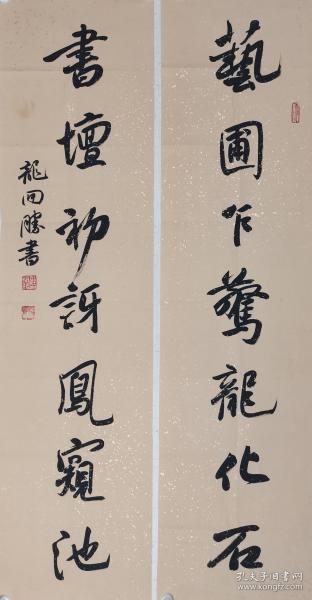 藝圃乍驚龍化石
書壇初訝鳳窺池
龍回勝書
孔夫子旧书网